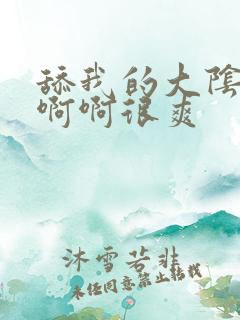 舔我的大陰
啊啊很爽
沐雪若非
未经同意禁止转载